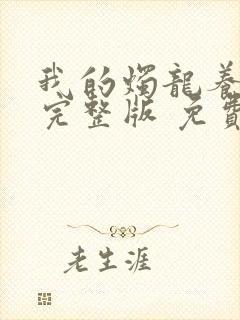 我的燭龍養
完整版 免費
老生涯